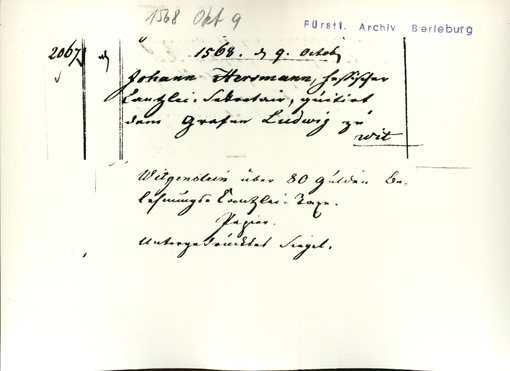 1568 Okt 9
Fürstl. Archiv Berleburg
2067
1568. d 9. Octob
Johann Hersmann, hessischer
Canzlei-Sekretair, quitirt
dem Grafen Ludwig zu
Wit
Witgenstein über 80 Gulden Be-
lehnungs-Canzlei-Taxe.
Papier.
Untergedrücktes Siegel.